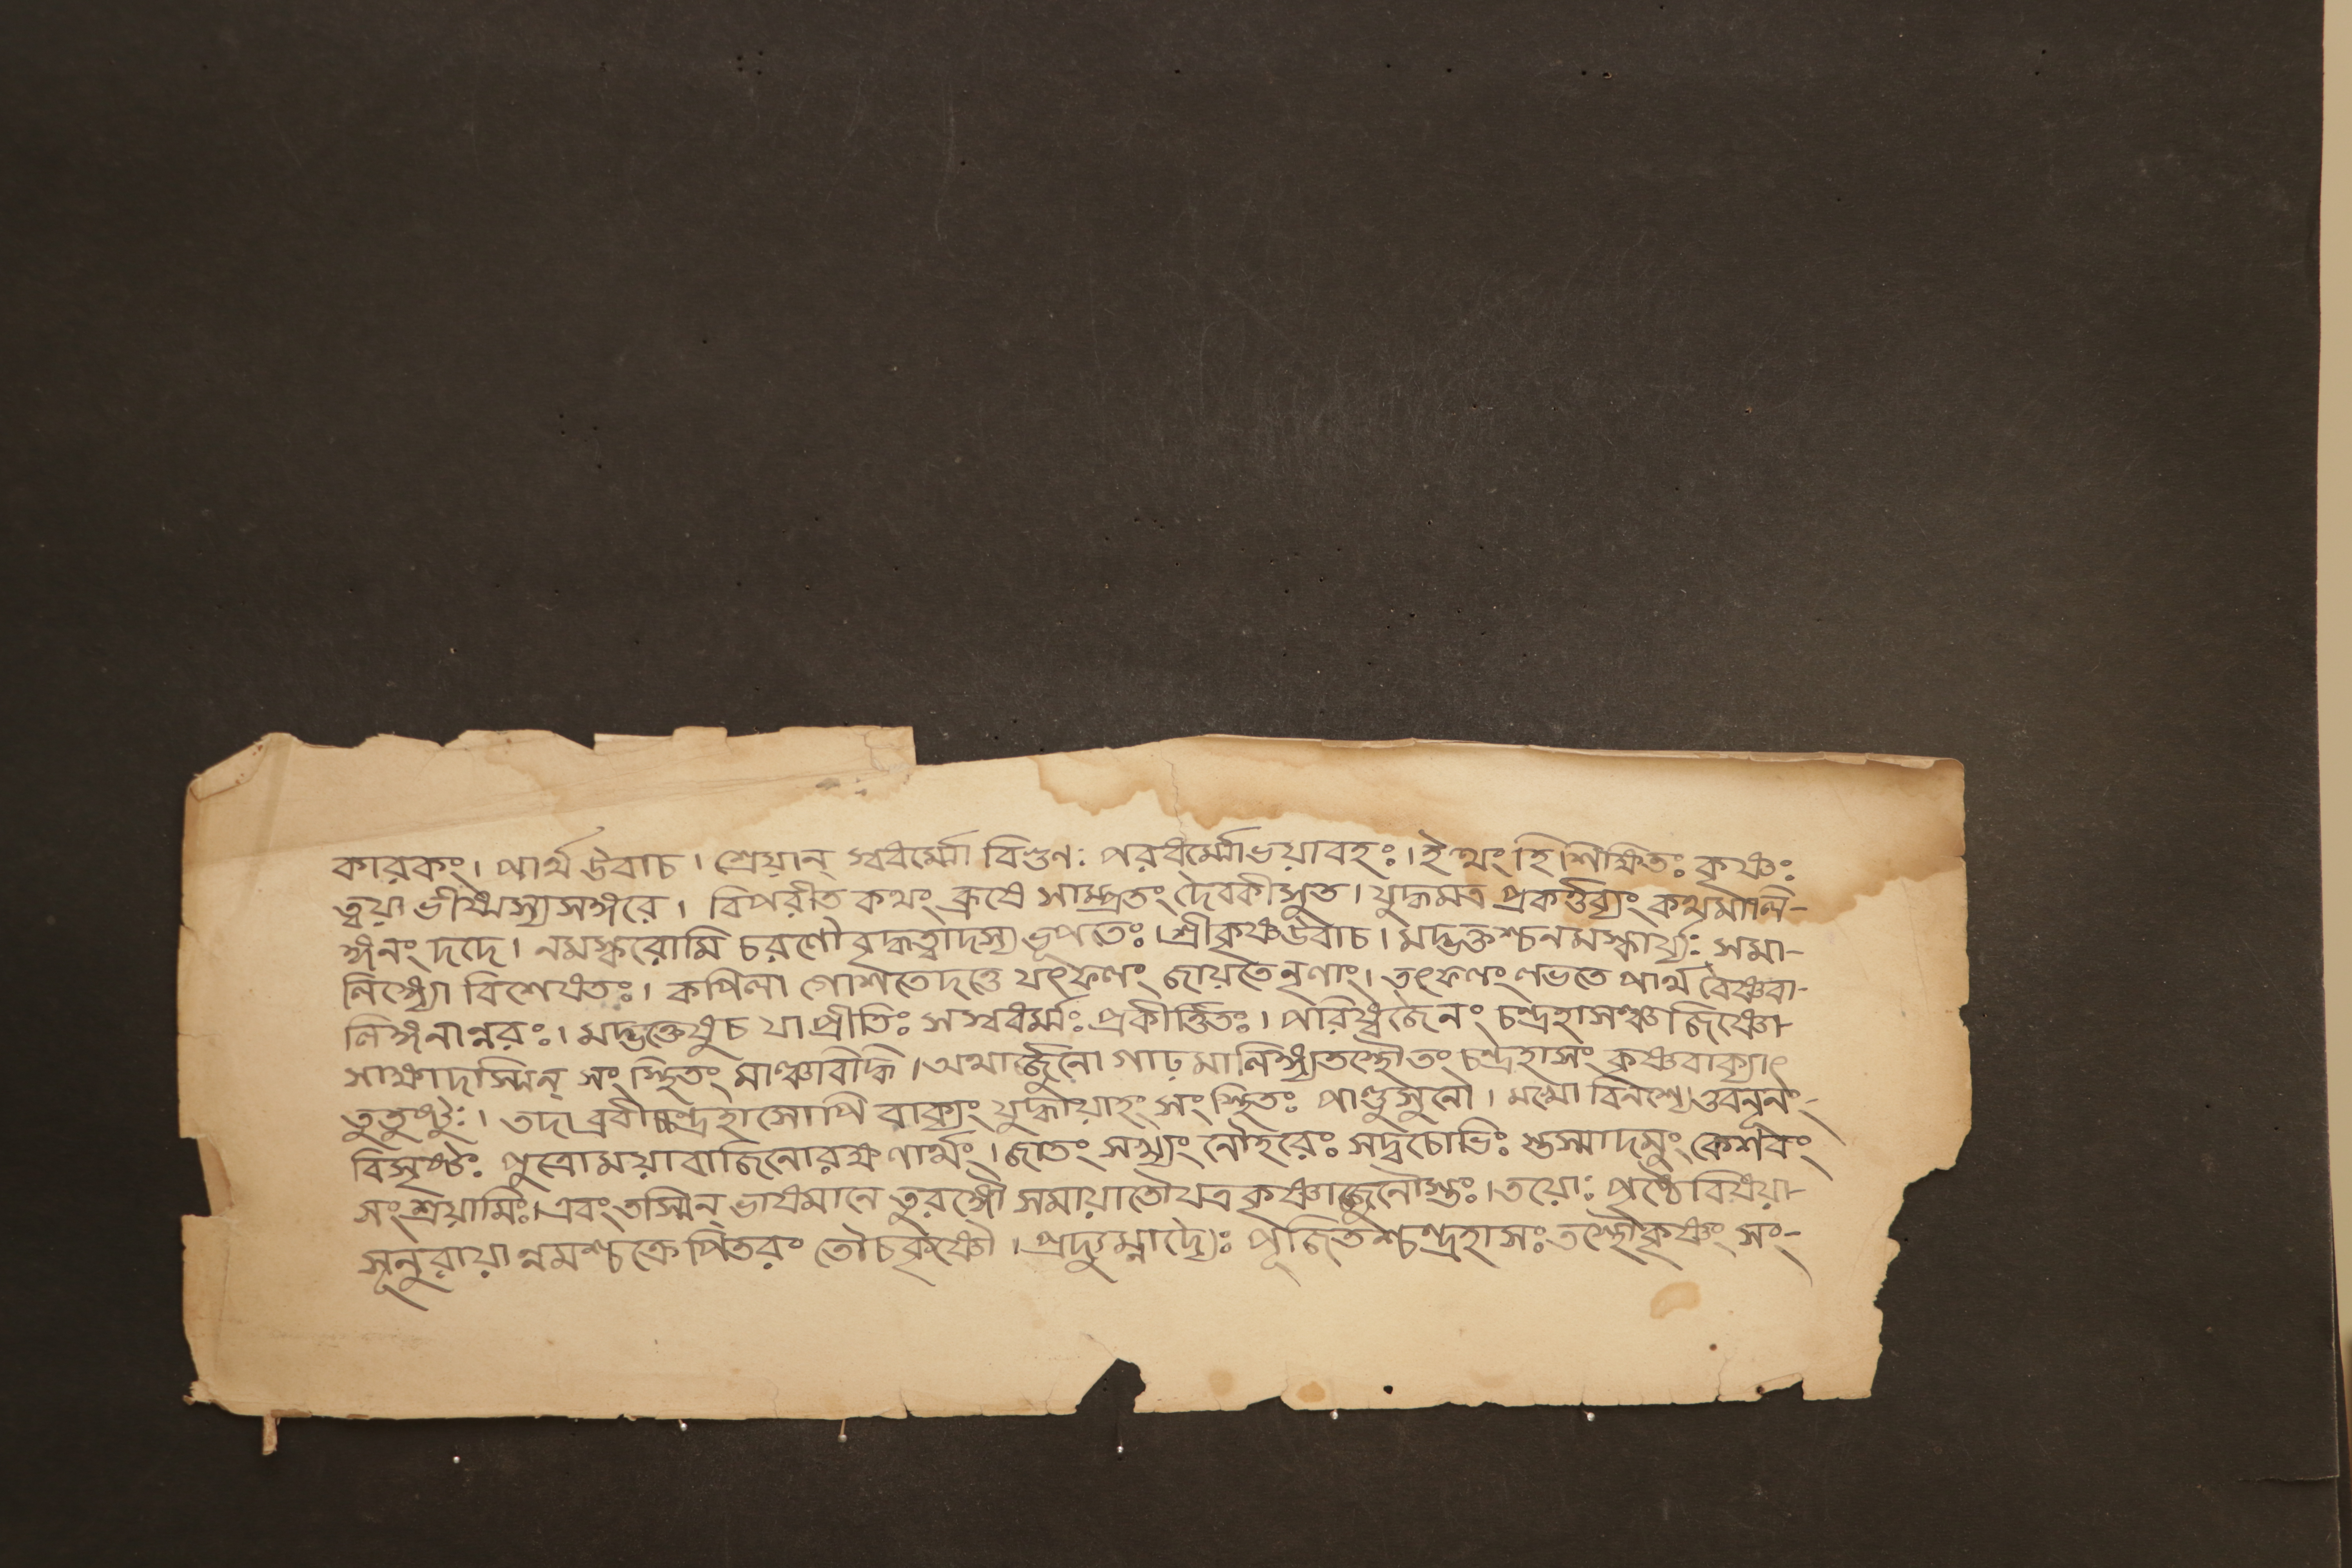 কারকং। পার্থ উবাচ। শ্রেয়ান্ স্বধর্ম্মো বিগুণঃ পরধর্ম্মোভয়াবহঃ। ইত্থং হি শিক্ষিতঃ কৃষ্ণঃ
ত্বয়া ভীষ্মস্য সঙ্গরে। বিপরীত কথং ব্রূষে সাম্প্রতং দেবকীসুত। যুদ্ধমত্র প্রকর্ত্তব্যং কথমালি-
ঙ্গনং দদে। নমস্করোমি চরণৌ বৃদ্ধত্বাদস্য ভূপতেঃ। শ্রীকৃষ্ণউবাচ। মদ্ভক্তশ্চ নমস্কার্য্যঃ সমা-
লিঙ্গ্যো বিশেষতঃ। কপিলা গোশতেদত্তে যৎফলং জায়তে নৃণাং। তৎফলং লভতে পার্থ বৈষ্ণবা-
লিঙ্গনান্নরঃ। মদ্ভক্তেষুচ যা প্রীতিঃ সস্বধর্ম্মঃ প্রকীর্ত্তিতঃ। পরিষ্বজৈনং চন্দ্রহাসঞ্চ জিষ্ণো-
সাক্ষাদস্মিন্ সংস্থিতং মাঞ্চবিদ্ধি। অথার্জ্জুনো গাঢ়মালিঙ্গ্যতস্থৌতং চন্দ্রহাসং কৃষ্ণবাক্যাৎ
তুতুষ্টুঃ। তদাব্রবীচ্চন্দ্রহাসোপি বাক্যং যুদ্ধায়াহং সংস্থিতঃ পাণ্ডুসুনো। মমো বিনশ্যে নূনং-
বিসৃষ্টঃ পুত্রোময়াবাজিনোরক্ষণার্থং। জাতং সখ্যং নৌহরেঃ সদ্বচোভিঃ স্তস্মাদমুং কেশবং
সংশ্রয়ামিঃ। এবংতস্মিন্ ভাষমানে তুরঙ্গৌ সমায়াতৌযত্র কৃষ্ণার্জ্জুনৌস্তঃ। তয়োঃ পৃষ্ঠে বিষয়া-
সূনুরায়ান্নমশ্চক্রে পিতরং তৌচকৃষ্ণৌ। প্রদ্যুম্নাদ্যৈঃ পূজিতশ্চন্দ্রহাসঃ তস্থৌকৃষ্ণং সং-